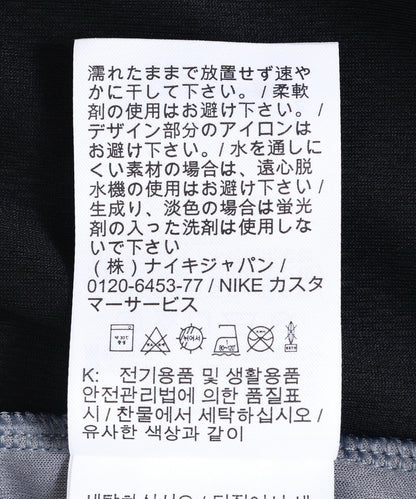 濡れたままで放置せず速や
かに干して下さい。/ 柔軟
剤の使用はお避け下さい。/
デザイン部分のアイロンは
お避け下さい。/ 水を通しに
くい素材の場合は、遠心脱
水機の使用はお避け下さい /
生成り、淡色の場合は蛍光
剤の入った洗剤は使用しな
いで下さい
（株）ナイキジャパン /
0120-6453-77 / NIKE カスタ
マーサービス
K: 전기용품 및 생활용품
안전관리법에 의한 품질표
시 / 찬물에서 세탁하십시오 /
유사한 색상과 같이